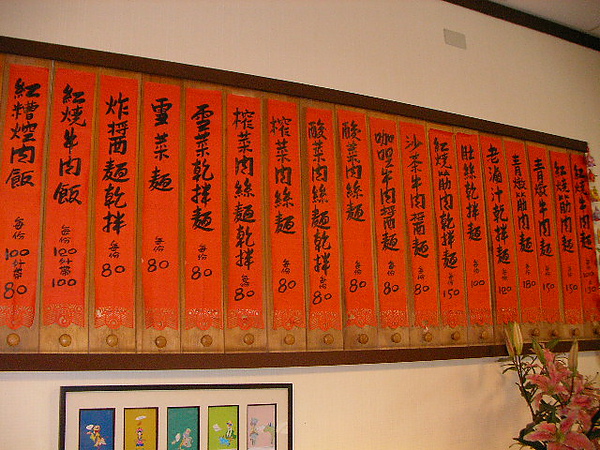 紅燒牛肉麵
紅燒筋肉麵 每份 150
青燉牛肉麵 每份 150
青燉筋肉麵 每份 180
老滷汁乾拌麵 每份
肚絲乾拌麵 每份 100
紅燒筋肉乾拌麵 每份 150
沙茶牛肉醬麵 每份 80
咖哩牛肉醬麵 每份 80
酸菜肉絲麵 每份 80
酸菜肉絲麵乾拌 每份 80
榨菜肉絲麵 每份 80
榨菜肉絲麵乾拌 每份 80
雪菜乾拌麵 每份 80
雪菜麵 每份 80
炸醬麵乾拌 每份 80
紅燒牛肉飯 每份 100 外帶 100
紅糟焢肉飯 每份 100 外帶 80